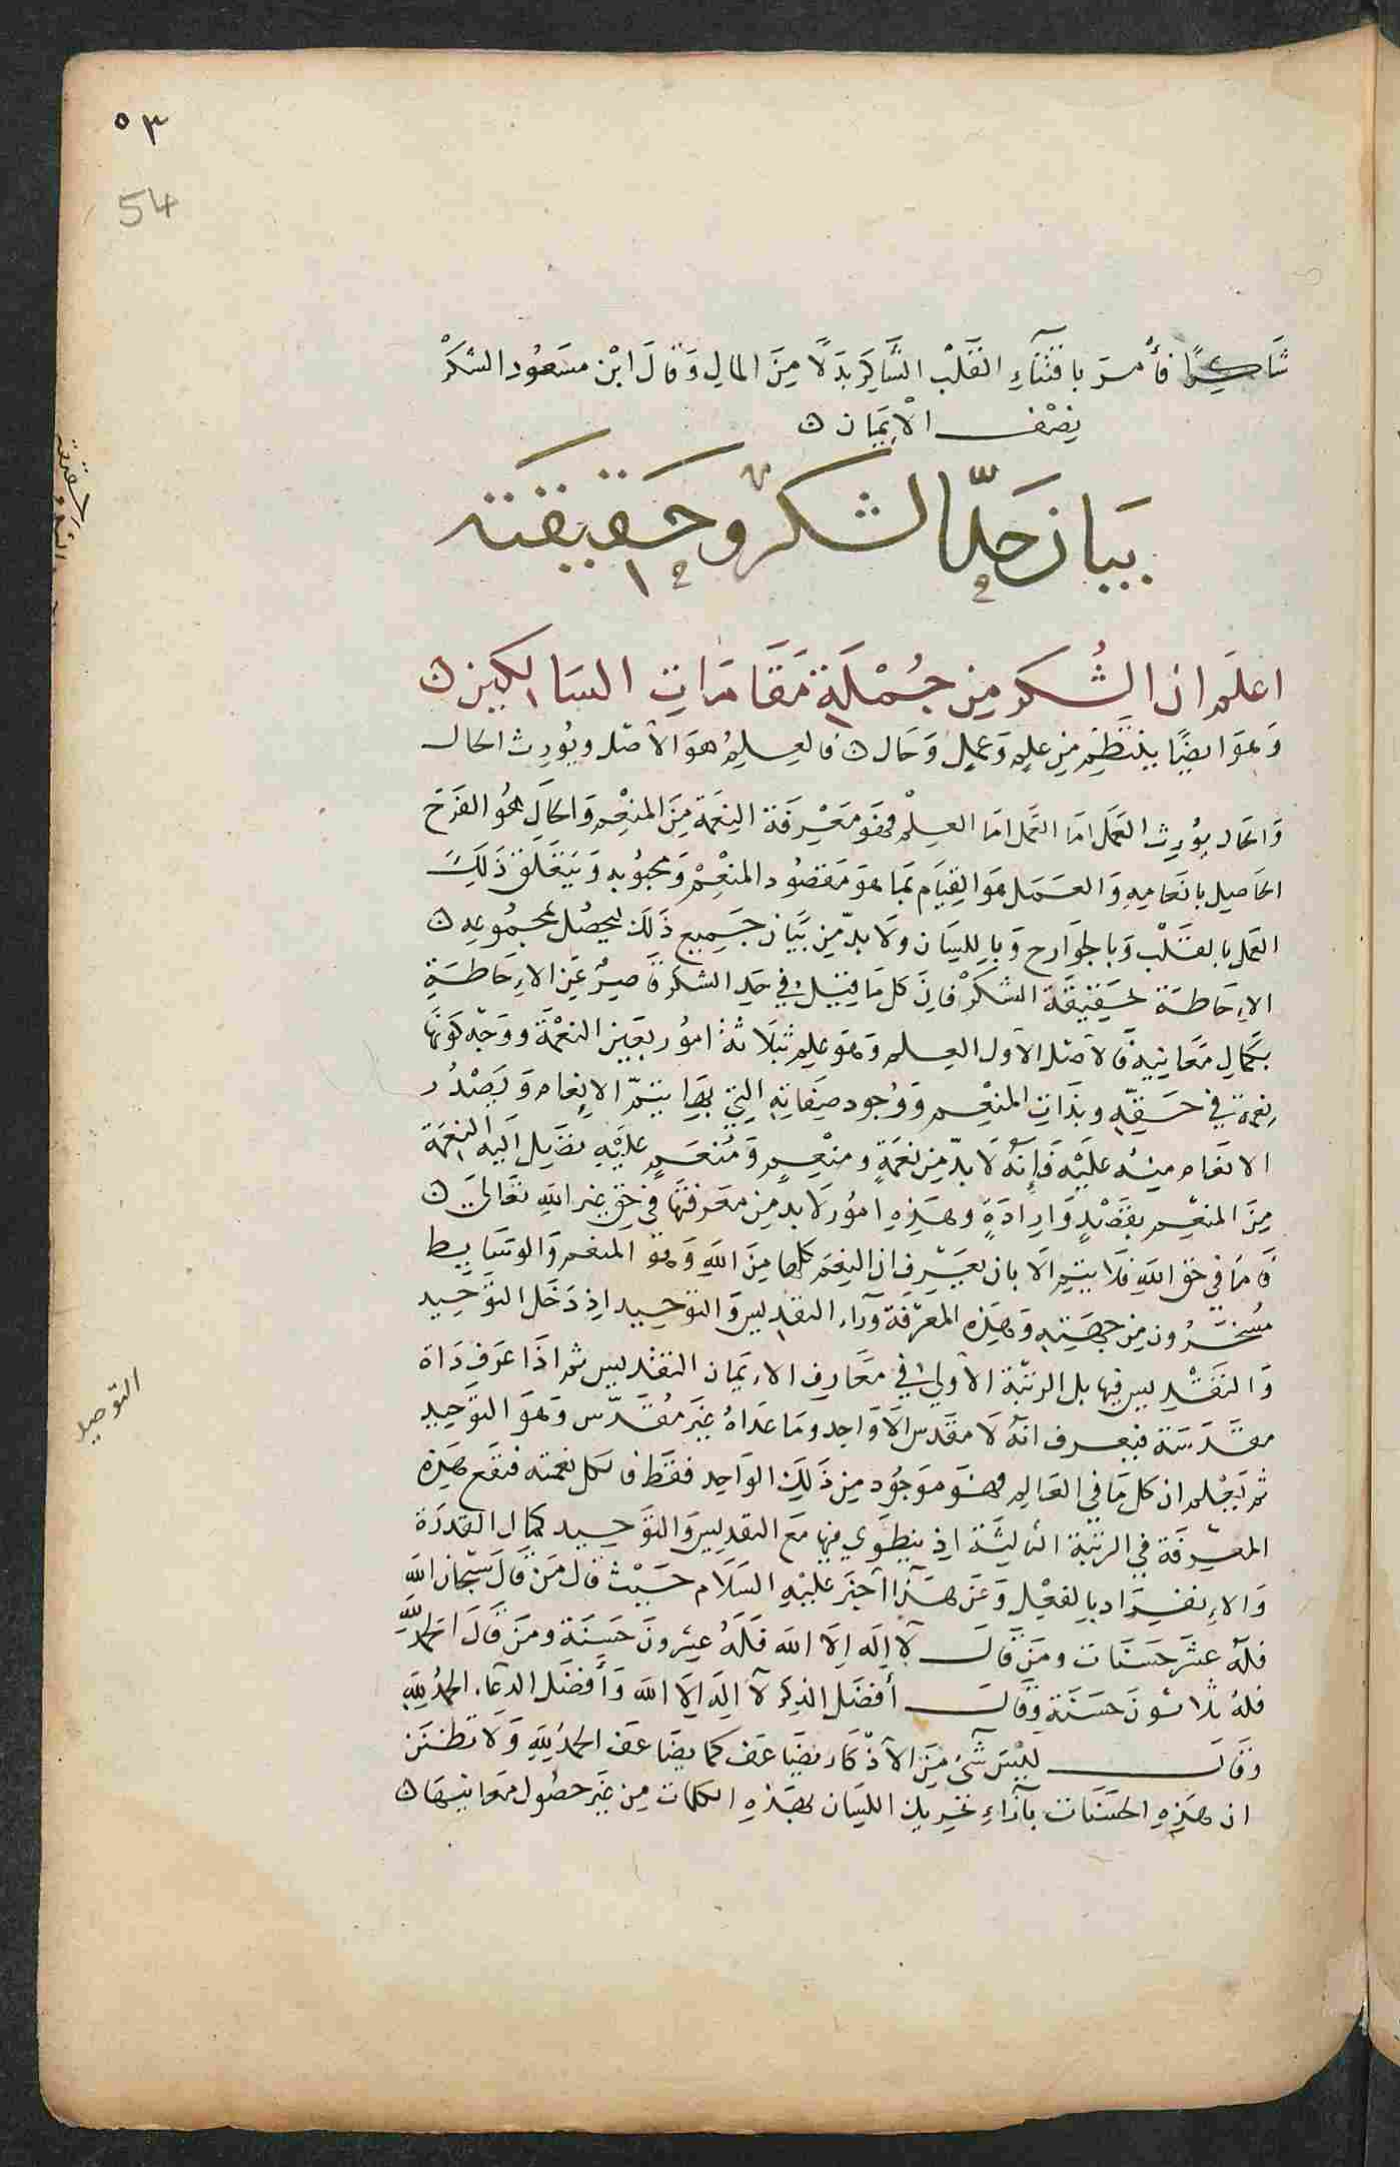 ٥٣
54
شَاكِرًا فأمر باقتنآءِ القَلْب الشَّاكِر بَدَلًا مِنَ المالِ وَقالَ ابْن مسَعُود الشكرْ
نصْف الْإيمَان
بيَان حَدّ الشكر وحَقيقَته
اعلَم ان الشُكر مِن جُمْلَة مَقَامَاتِ السَالكين
وَهوَ ايضًا ينتَظِم مِن علمٍ وَعملٍ وَحَال فالعِلمُ هوَ الأصْل ويُورِث الحال
وَالحَال يوُرِث العَمَل امَا العِلْم فهَو مَعْرِفَة النِعْمَة مِنَ المنْعِم وَالحَالَ هُو الفَرَح
الحَاصِل بانعَامِهِ وَالعَمَل هوَ القِيَام بمَا هوَ مَقصُود المنْعِمْ وَمحبُوُبه وَيَتعَلَق ذَلِكَ
العَمل بالقَلْب وَبالجوَارح وَباللِسَان ولَا بدّ مِن بَيَان جَمِيع ذَلَك ليحصُل بمجمُوُعِه
الاِحَاطَة بحَقيقَة الشكَرْ فاِنَّ كل مَا قيْلَ في حَدِ الشكر قَاصِرٌ عَنِ الاِحَاطَةِ
بكمَالِ معَانِيهِ فَالأصْل الأول العِلم وَهوَ علِم بثلَاثَة امُور بعَينِ النعْمَة ووَجْه كَونهَا
نِعمَة في حَقِّهِ وبذَاتِ المنْعِم وَوُجود صِفَاتِهِ التِي بهَا يتمّ الاِنعَام وَيَصْدُر
الانعَام مِنهُ علَيْه فَإنهُ لَا بدّ مِن نعمَةٍ ومنْعِمٍ وَمُنعَمٍ عليْهِ تصَل اَليه النِعمَة
مِنَ المنعِم بقصْدٍ وَاِرادَةٍ وهَذِهِ امُور لَا بد مِن مَعرفتهَا في حَق غير اللَهِ تعَالىَ
فَامَا في حَق اللَهِ فلا يتم الَا بان يعَرف ان النِعَم كلهَا مِنَ اللَهِ وَهوَ المنعم وَالوسَايِط
مُسَخَّرُون مِن جهَتِهِ وَهَذِه المعَرفَة ورآء التقدِيس وَالتوحِيد اِذ دَخَل التَوْحِيد
وَالتَقْدِيس فيها بل الرتبَة الأولي في معَارِف الاِيمَان التقْدِيس ثم اذَا عَرَف ذَاتا
مقدّسَة فيعرف انَه لَا مقدَس الَا وَاحد ومَا عدَاهُ غير مُقدّس وَهوَ التوحِيد
ثم يَعْلم ان كل مَا في العَالم فهوَ مَوجُود مِن ذَلِكَ الوَاحِد فقَط فالكل نعمَة منه فتقَع هَذِه
المعَرفَة في الرتبَة الثالِثَة اِذ ينطَوي فيها معَ التقدِيس وَالتوْحِيد كمَال القدرَة
وَالاِنفِرَاد بالفِعْل وَعَن هَذَا اخبَر عليْهِ السَلَام حَيْث قال مَن قَالَ سُبحَان اللَه
فلَهُ عشَر حَسَنَات ومَن قَالَ لَآ اِلَه اِلَا الله فَلَهُ عِشرونَ حَسِنَة ومَن قَالَ الحمد للَهِ
فلهُ ثلاثونَ حسَنَة وَقَالَ أفضَل الذِكر لآ اِلَه اِلَا الله وَأفضَل الدعَآء الحمدُ للَهِ
وَقَالَ ليْسَ شَيْ مِنَ الأذْكَار يُضَاعَف كمَا يُضَاعَف الحمدُ للَهِ وَلَا تظنَن
ان هَذِه الحَسَنَات بازَآءِ تحريك اللسَان بهَذِهِ الكلمَات مِن غير حصُول مَعَانيهَا
التوحيد